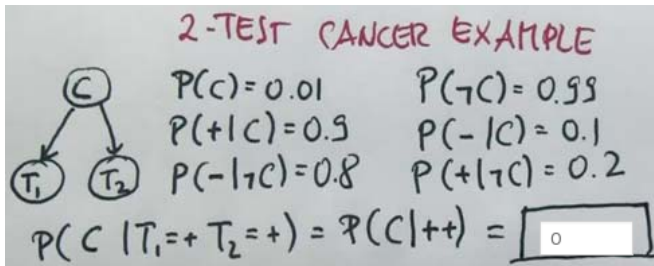 2-TEST CANCER EXAMPLE
C P(C)=0.01 P(¬C)=0.99
P(+|C)=0.9 P(-|C)=0.1
T₁ T₂ P(-|¬C)=0.8 P(+|¬C)=0.2
P(C|T₁=+ T₂=+) = P(C|++) = 0